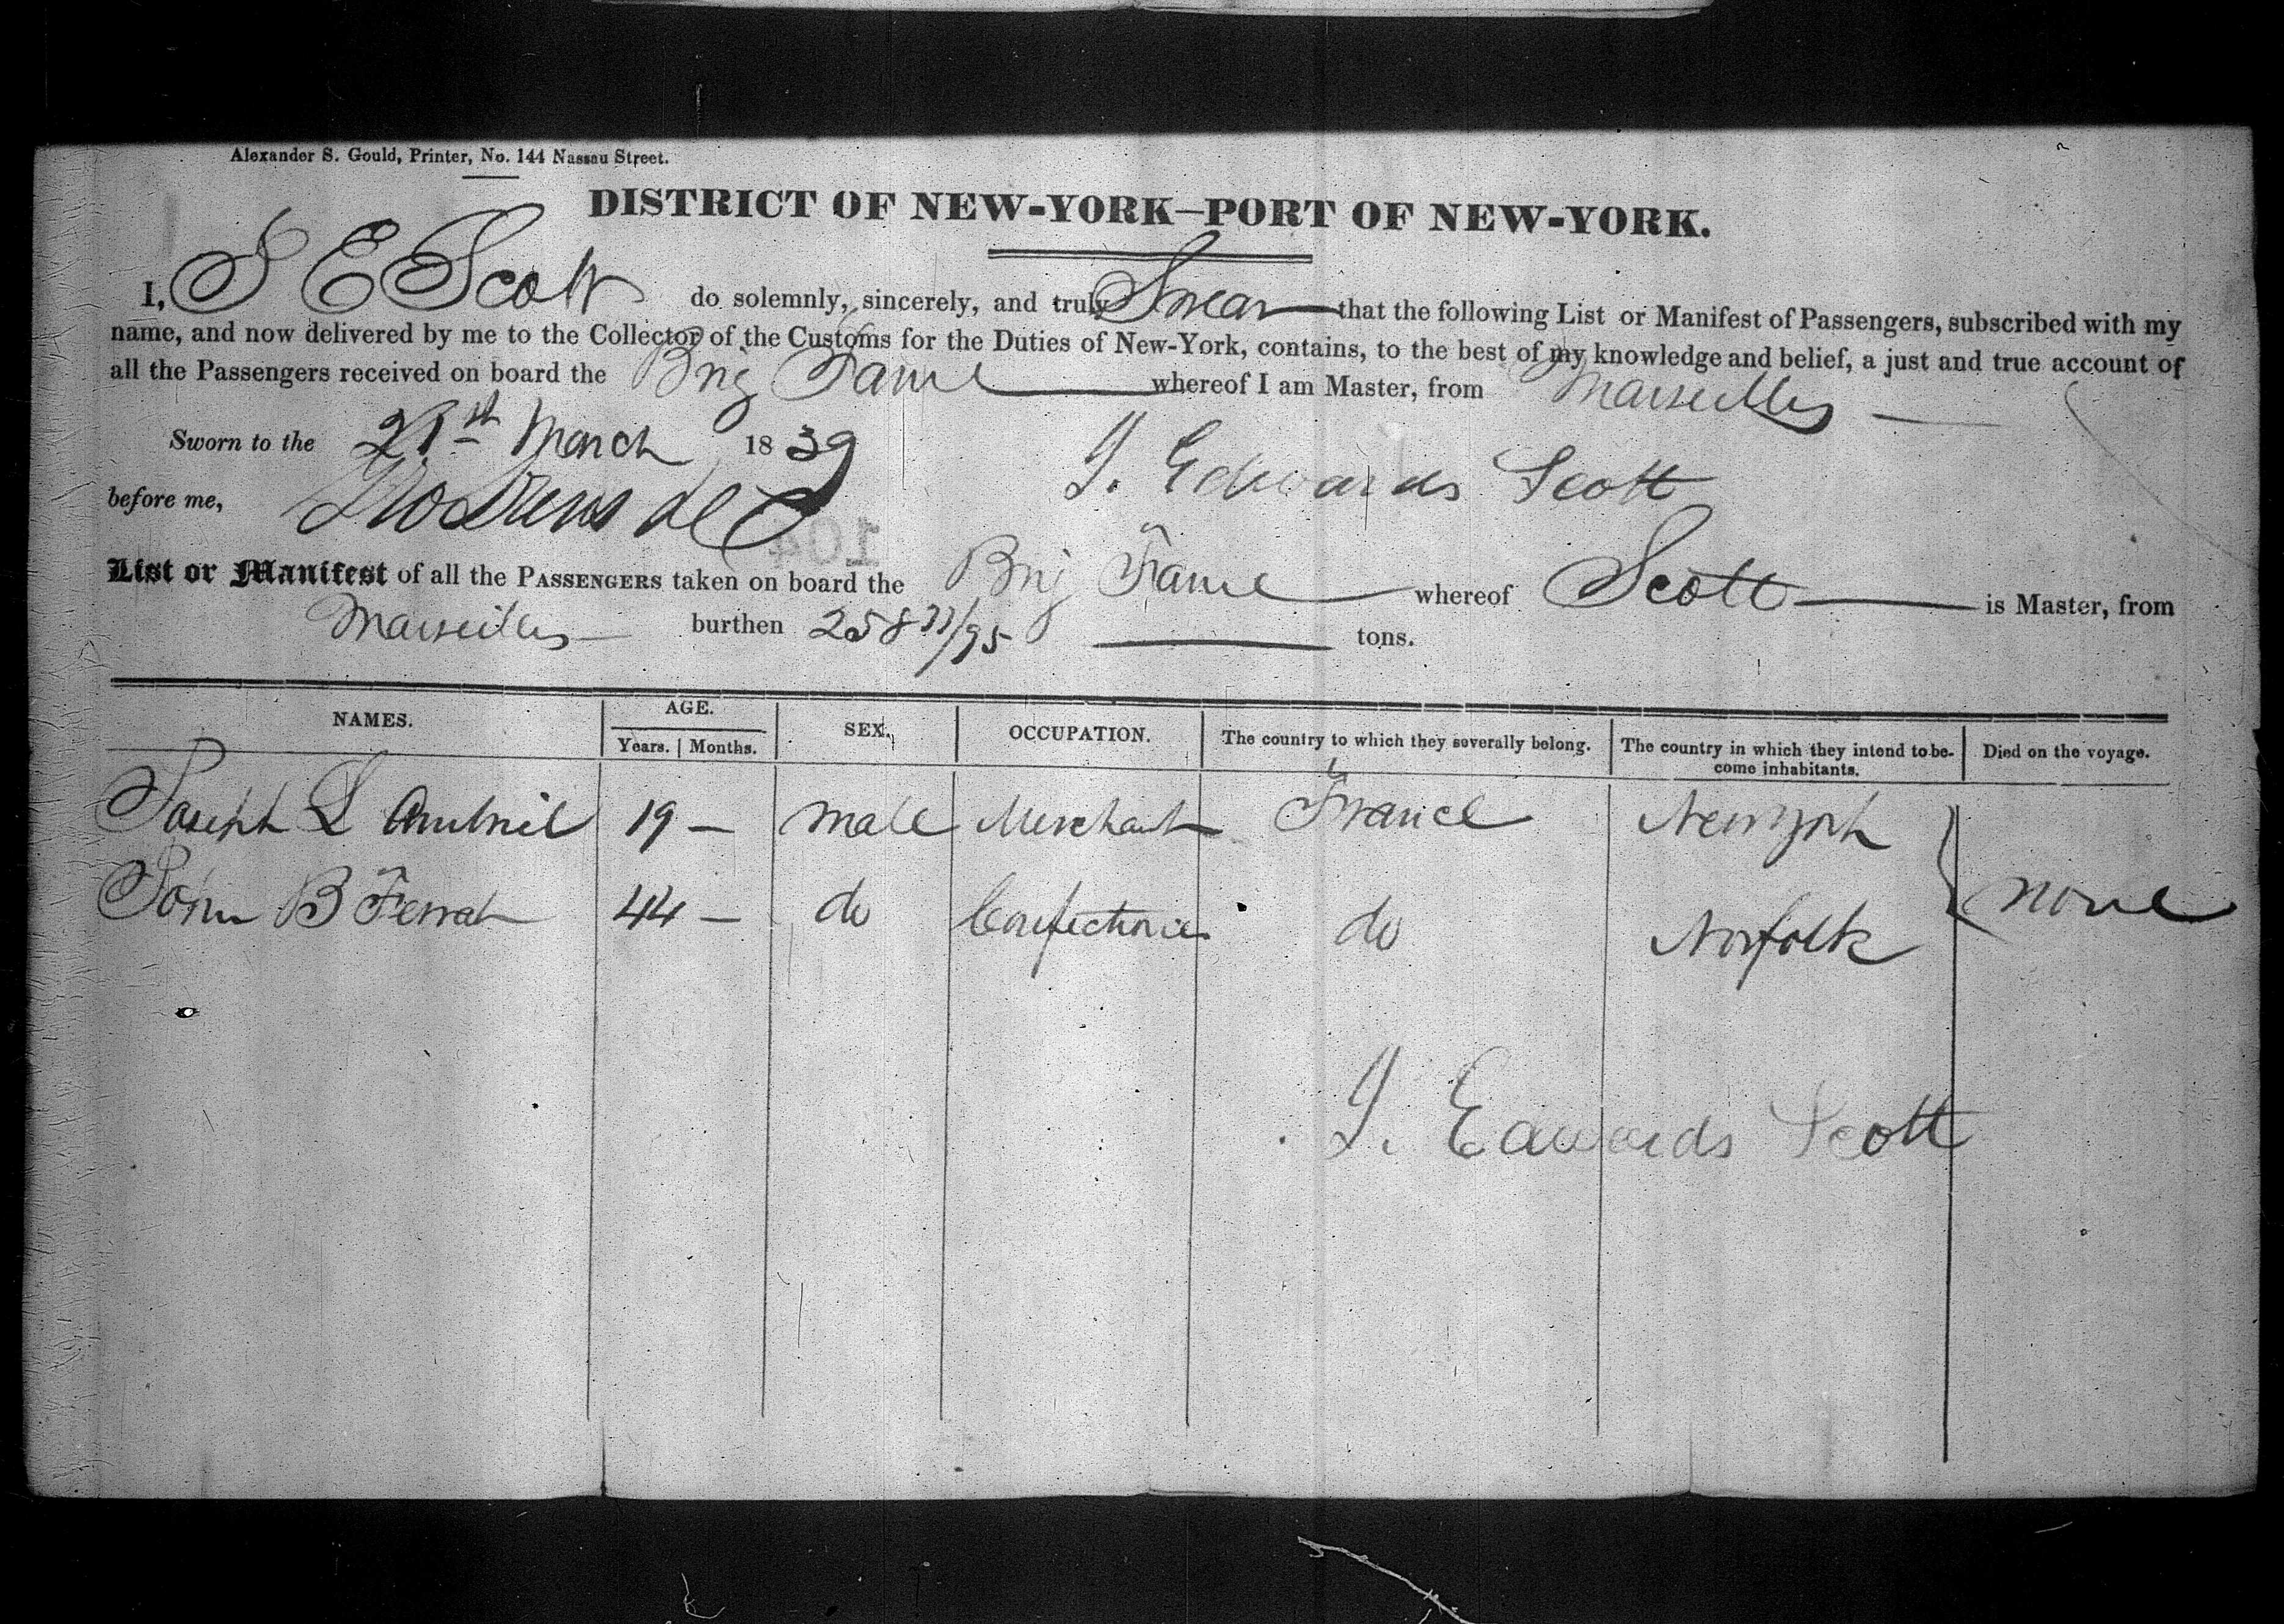 Alexander S. Gould, Printer, No. 144 Nassau Street.
DISTRICT OF NEW-YORK—PORT OF NEW-YORK.
I, J E Scott do solemnly, sincerely, and truly Swear that the following List or Manifest of Passengers, subscribed with my
name, and now delivered by me to the Collector of the Customs for the Duties of New-York, contains, to the best of my knowledge and belief, a just and true account of
all the Passengers received on board the Brig Fame whereof I am Master, from Marseilles
Sworn to the 21st March 1839
J. Edwards Scott
before me,
104
List or Manifest of all the PASSENGERS taken on board the Brig Fame whereof Scott is Master, from
Marseilles burthen 258 77/95 tons.
NAMES. AGE. SEX. OCCUPATION. The country to which they severally belong. The country in which they intend to be- Died on the voyage.
Years. Months. come inhabitants.
Joseph L 19 male Merchant France New York
John B Ferrat 44 do Confectioner do Norfolk none
J. Edwards Scott